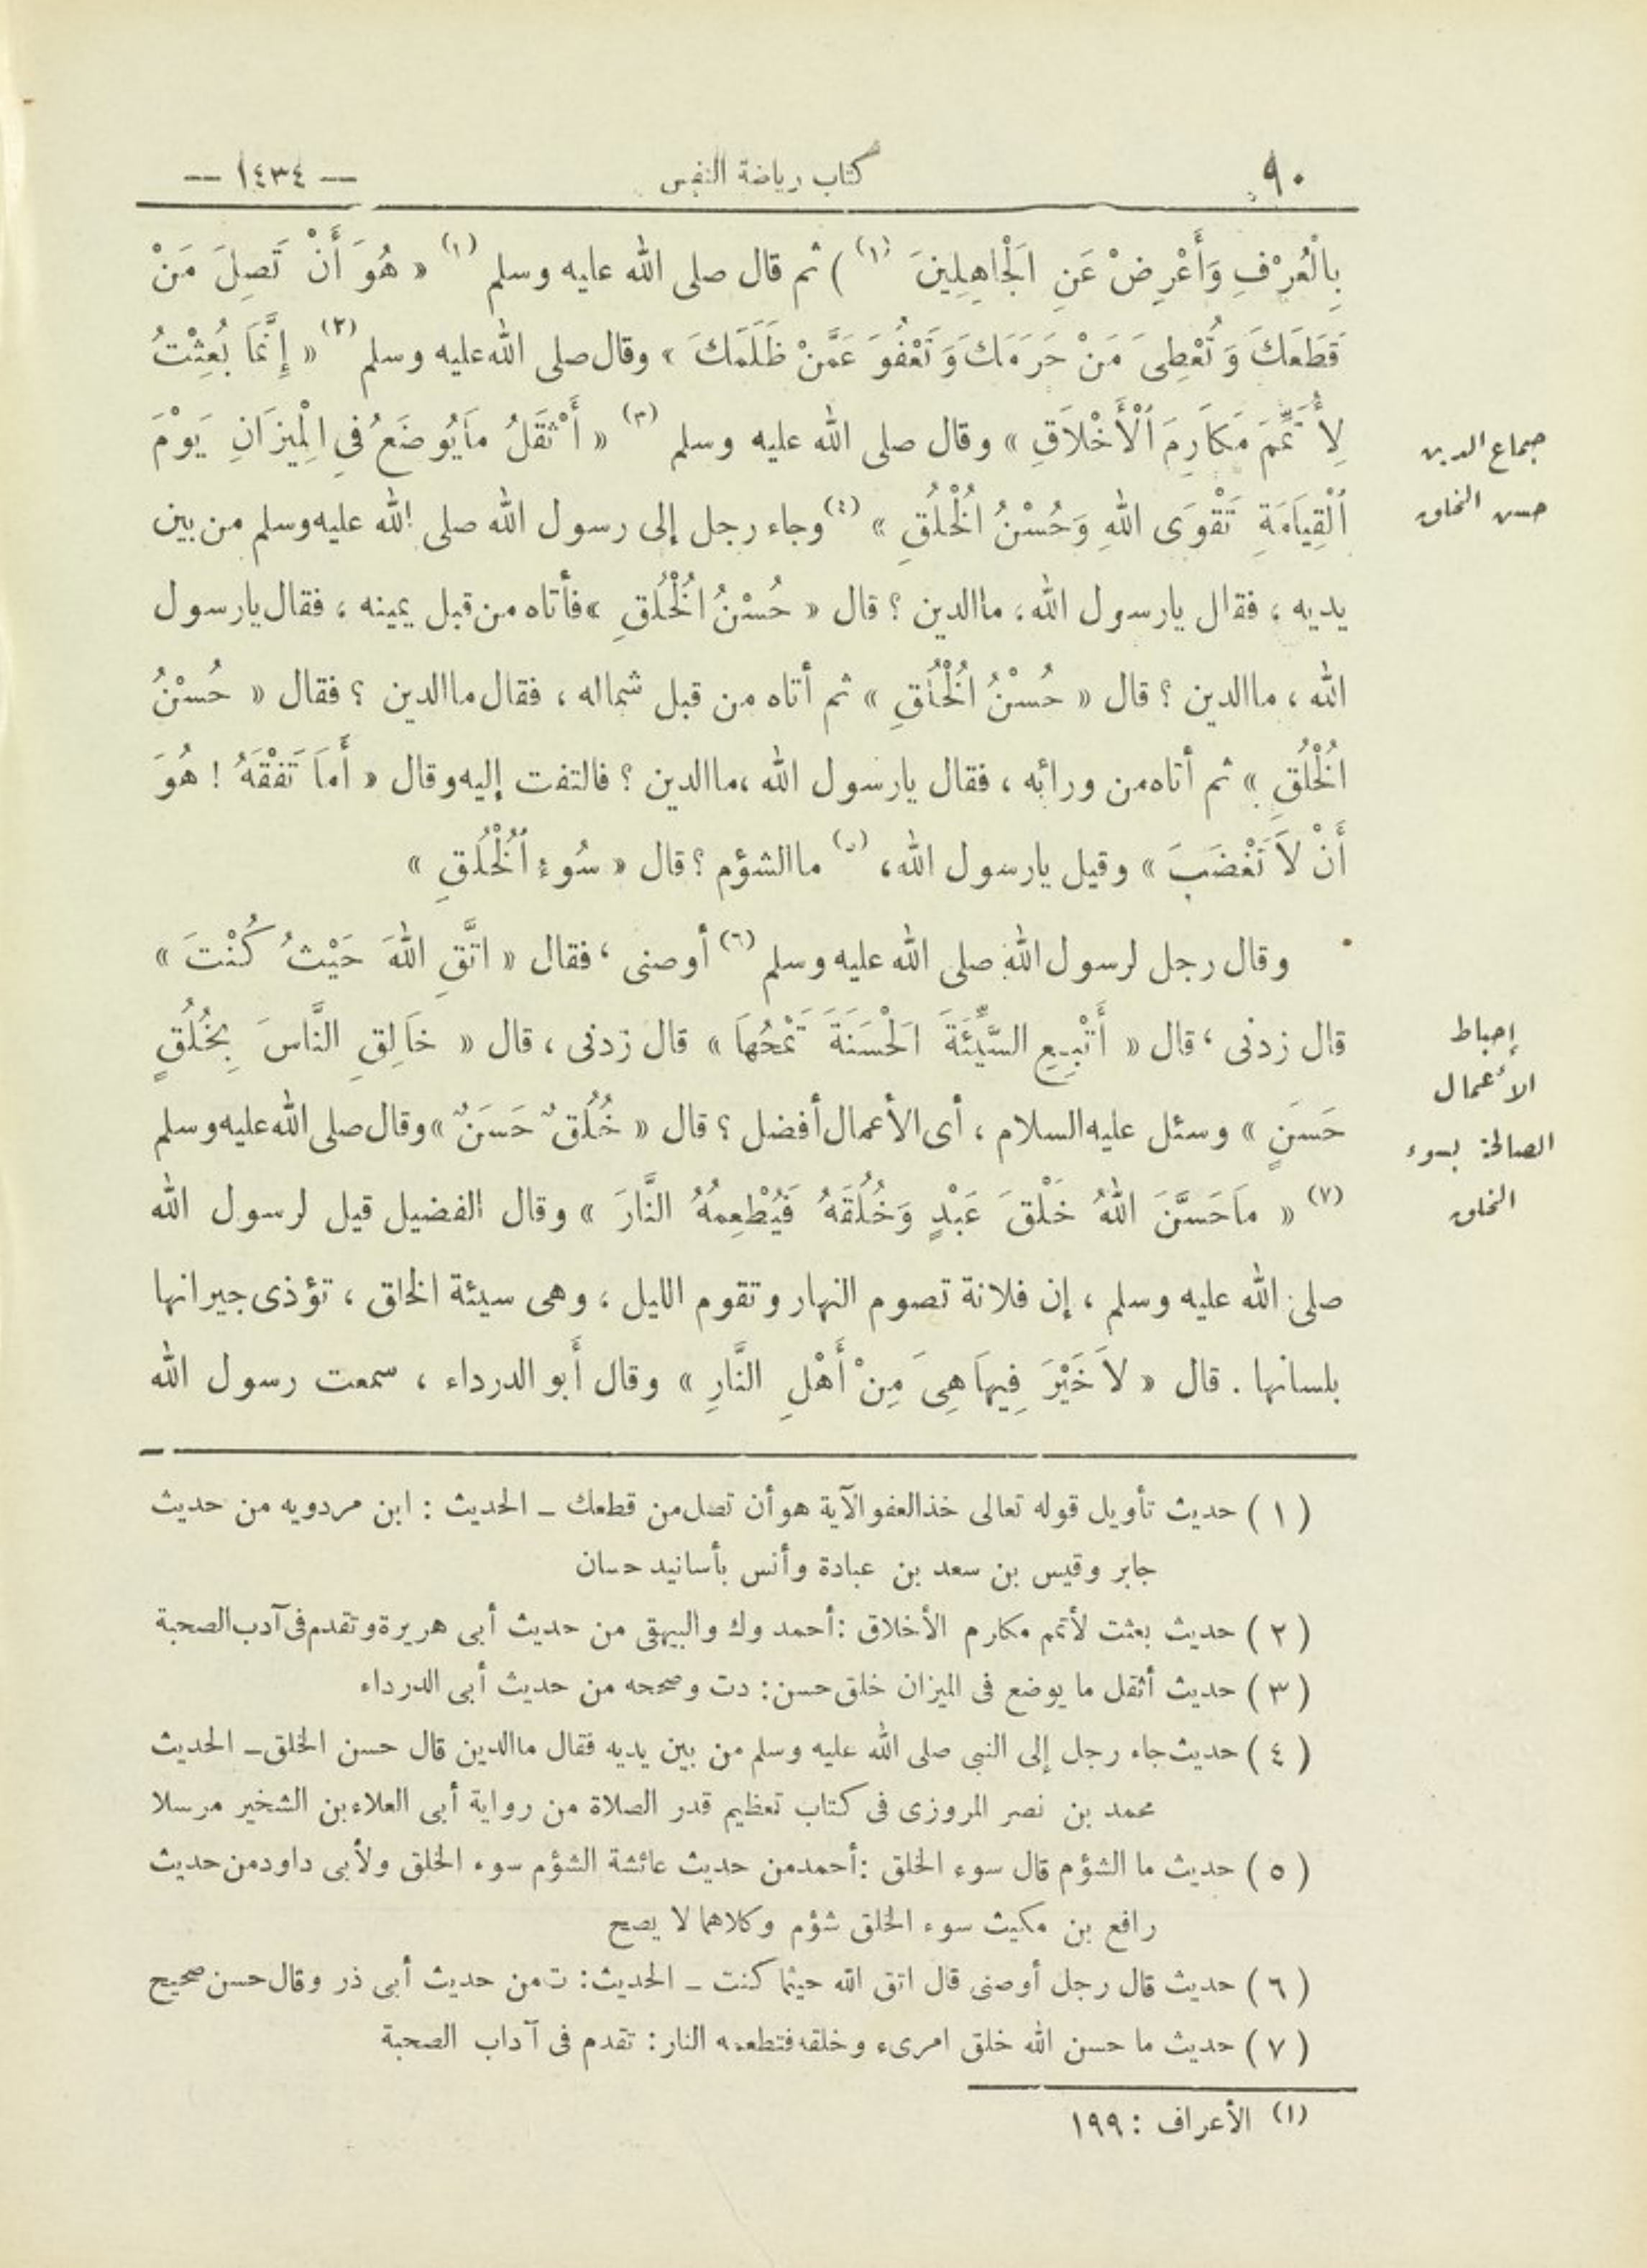 ٩٠
كتاب رياضة النفس
— ١٤٣٤ —
بِالْعُرْفِ وَأَعْرِضْ عَنِ اَلْجَاهِلِينَ (١) ) ثم قال صلى الله عليه وسلم (١) « هُوَ أَنْ تَصِلَ مَنْ
قَطَعَكَ وَتُعْطِىَ مَنْ حَرَمَكَ وَتَعْفُوَ عَمَّنْ ظَلَمَكَ » وقال صلى الله عليه وسلم (٢) « إِنَّمَا بُعِثْتُ
لِأُتَمِّمَ مَكَارِمَ اَلْأَخْلَاقِ » وقال صلى الله عليه وسلم (٣) « أَثْقَلُ مَا يُوضَعُ فِى الْمِيزَانِ يَوْمَ
اَلْقِيَامَةِ تَقْوَى اللهِ وَحُسْنُ اُلْخُلُقِ » (٤) وجاء رجل إلى رسول الله صلى الله عليه وسلم من بين
جماع الدين
حسن الخلق
يديه ، فقال يارسول الله، ما الدين ؟ قال « حُسْنُ اُلْخُلُقِ » فأتاه من قبل يمينه ، فقال يارسول
الله ، ما الدين ؟ قال « حُسْنُ اُلْخُلُقِ » ثم أتاه من قبل شماله ، فقال ما الدين ؟ فقال « حُسْنُ
اُلْخُلُقِ » ثم أتاه من ورائه ، فقال يارسول الله ،ما الدين ؟ فالتفت إليه وقال « أَمَا تَفْقَهُ ! هُوَ
أَنْ لَا تَغْضَبَ » وقيل يارسول الله، (٥) ما الشؤم ؟ قال « سُوءُ اُلْخُلُقِ »
وقال رجل لرسول الله صلى الله عليه وسلم (٦) أوصنى ، فقال « اتَّقِ اللهَ حَيْثُ كُنْتَ »
قال زدنى ، قال « أَتْبِعِ السَّيِّئَةَ اَلْحَسَنَةَ تَمْحُهَا » قال زدنى ، قال « خَالِقِ النَّاسَ بِخُلُقٍ
حَسَنٍ » وسئل عليه السلام ، أى الأعمال أفضل ؟ قال « خُلُقٌ حَسَنٌ » وقال صلى الله عليه وسلم
(٧) « مَا حَسَّنَ اللهُ خَلْقَ عَبْدٍ وَخُلُقَهُ فَيُطْعِمُهُ النَّارَ » وقال الفضيل قيل لرسول الله
إحباط
الأعمال
الصالحة بسوء
الخلق
صلى الله عليه وسلم ، إن فلانة تصوم النهار وتقوم الليل ، وهى سيئة الخلق ، تؤذى جيرانها
بلسانها . قال « لَا خَيْرَ فِيهَا هِىَ مِنْ أَهْلِ النَّارِ » وقال أبو الدرداء ، سمعت رسول الله
( ١ ) حديث تأويل قوله تعالى خذ العفو الآية هو أن تصل من قطعك ـ الحديث : ابن مردويه من حديث
جابر وقيس بن سعد بن عبادة وأنس بأسانيد حسان
( ٢ ) حديث بعثت لأتمم مكارم الأخلاق :أحمد وك والبيهقى من حديث أبى هريرة وتقدم فى آدب الصحبة
( ٣ ) حديث أثقل ما يوضع فى الميزان خلق حسن: دت وصححه من حديث أبى الدرداء
( ٤ ) حديث جاء رجل إلى النبى صلى الله عليه وسلم من بين يديه فقال ما الدين قال حسن الخلق ـ الحديث
محمد بن نصر المروزى فى كتاب تعظيم قدر الصلاة من رواية أبى العلاء بن الشخير مرسلا
( ٥ ) حديث ما الشؤم قال سوء الخلق :أحمد من حديث عائشة الشؤم سوء الخلق ولأبى داود من حديث
رافع بن مكيث سوء الخلق شؤم وكلاهما لا يصح
( ٦ ) حديث قال رجل أوصنى قال اتق الله حيثما كنت ـ الحديث: ت من حديث أبى ذر وقال حسن صحيح
( ٧ ) حديث ما حسن الله خلق امرىء وخلقه فتطعمه النار: تقدم فى آداب الصحبة
(١) الأعراف : ١٩٩